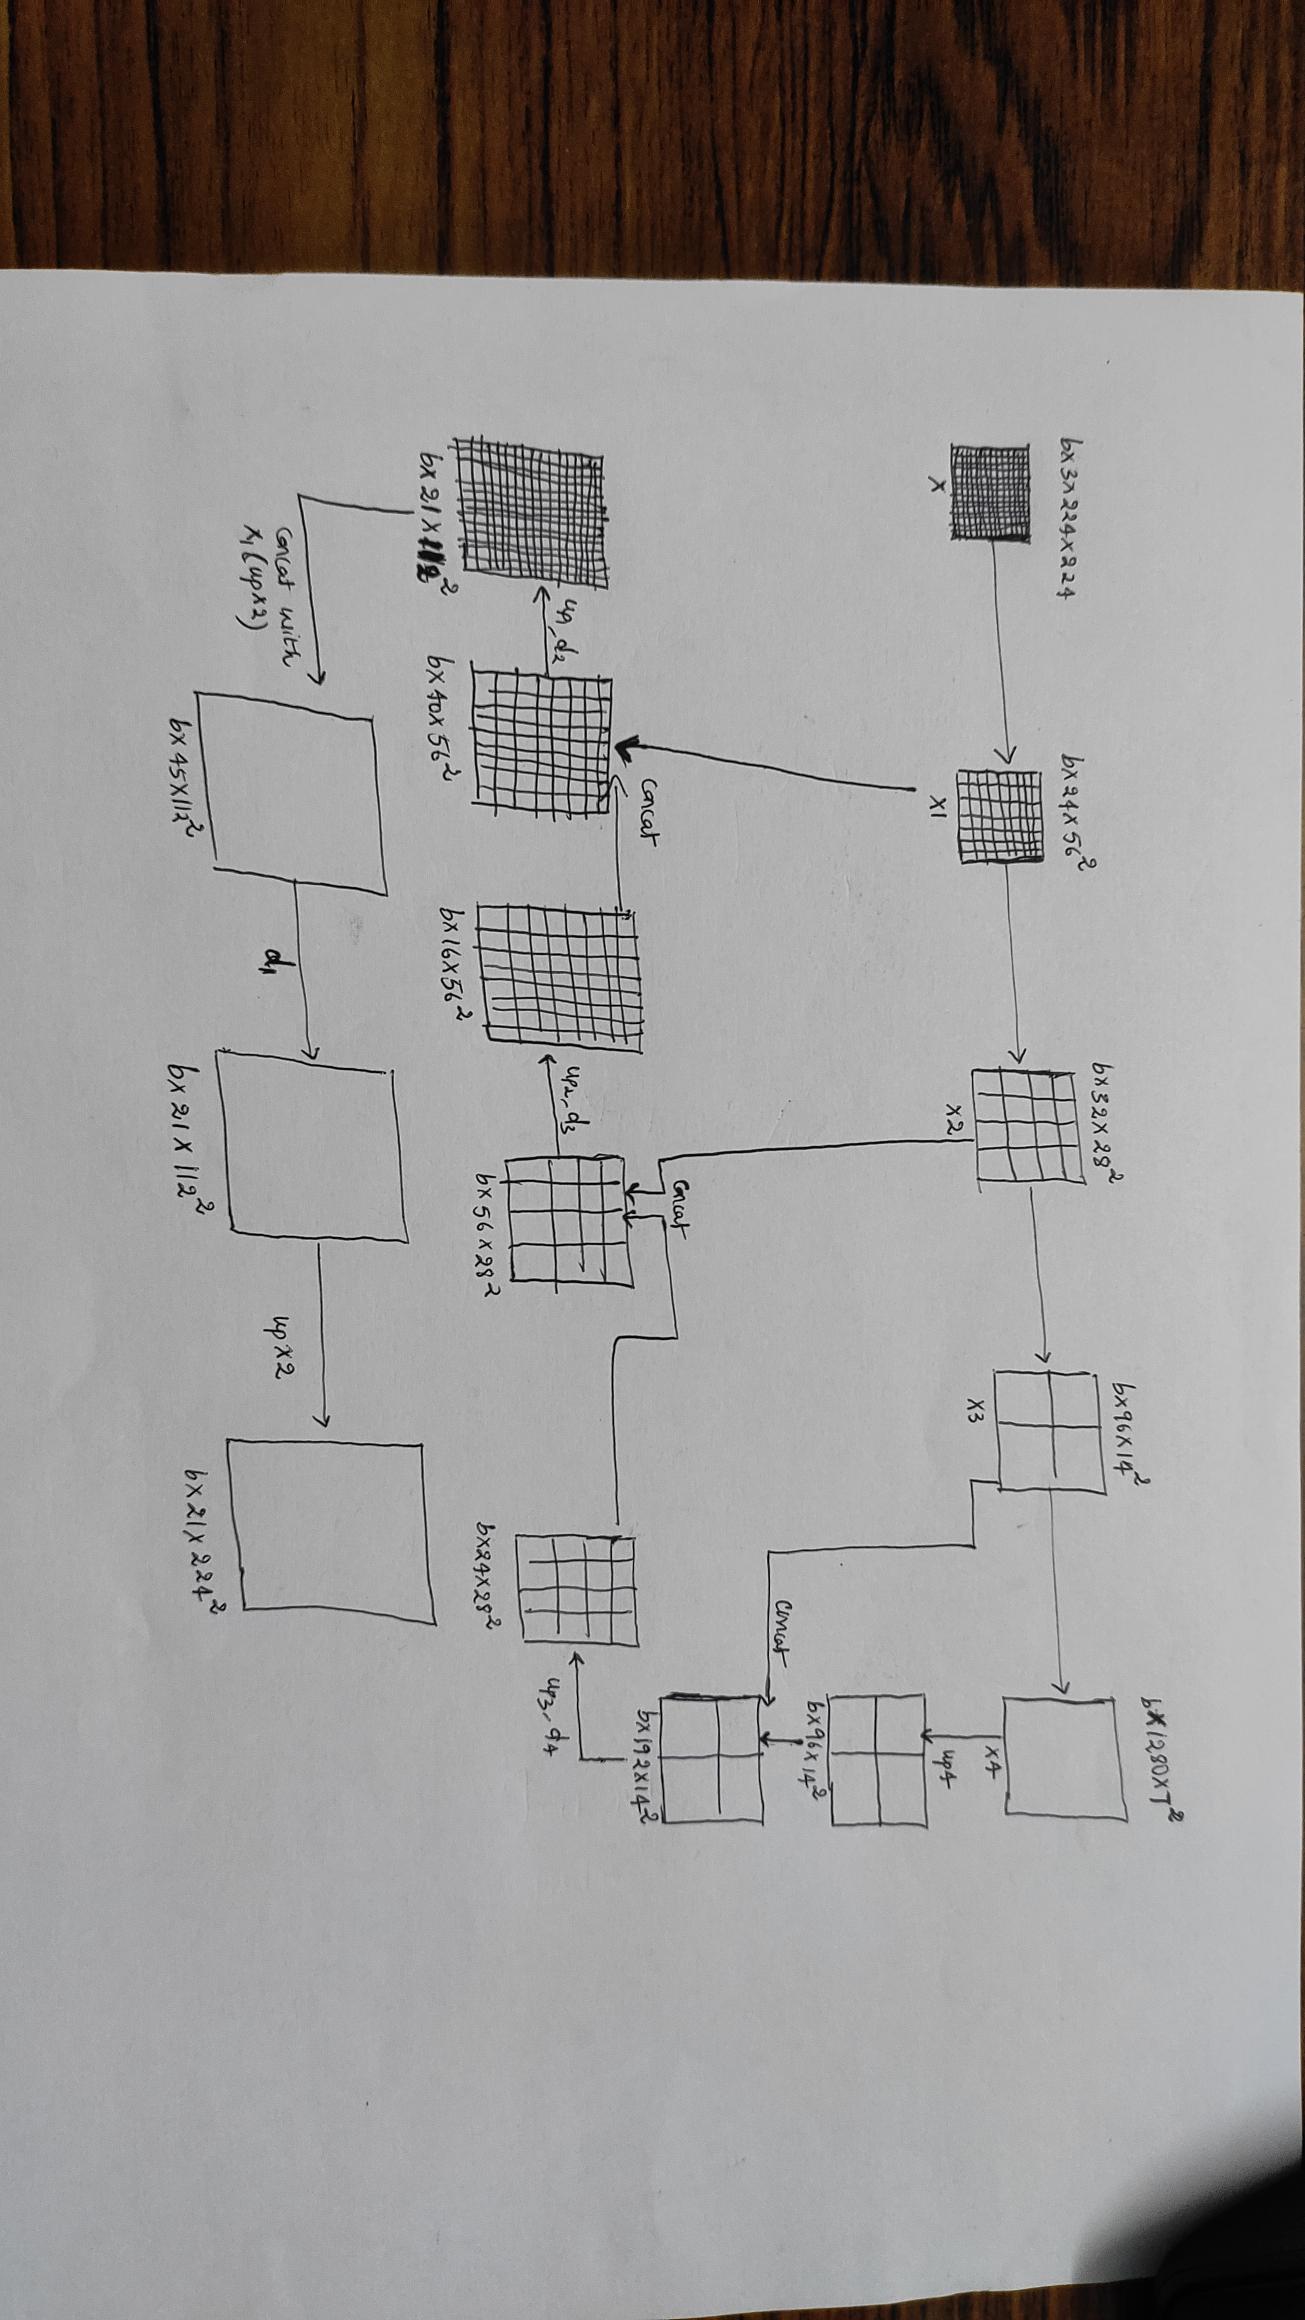 bx3x224x224
X
bx24x56²
X1
bx32x28²
X2
bx96x14²
X3
bx1280x7²
X4
up4
bx96x14²
Concat
bx192x14²
up3, d4
bx24x28²
Concat
bx56x28²
up2, d3
bx16x56²
Concat
bx40x56²
up1, d2
bx21x112²
Concat with
x1(upx2)
bx45x112²
d1
bx21x112²
upx2
bx21x224²